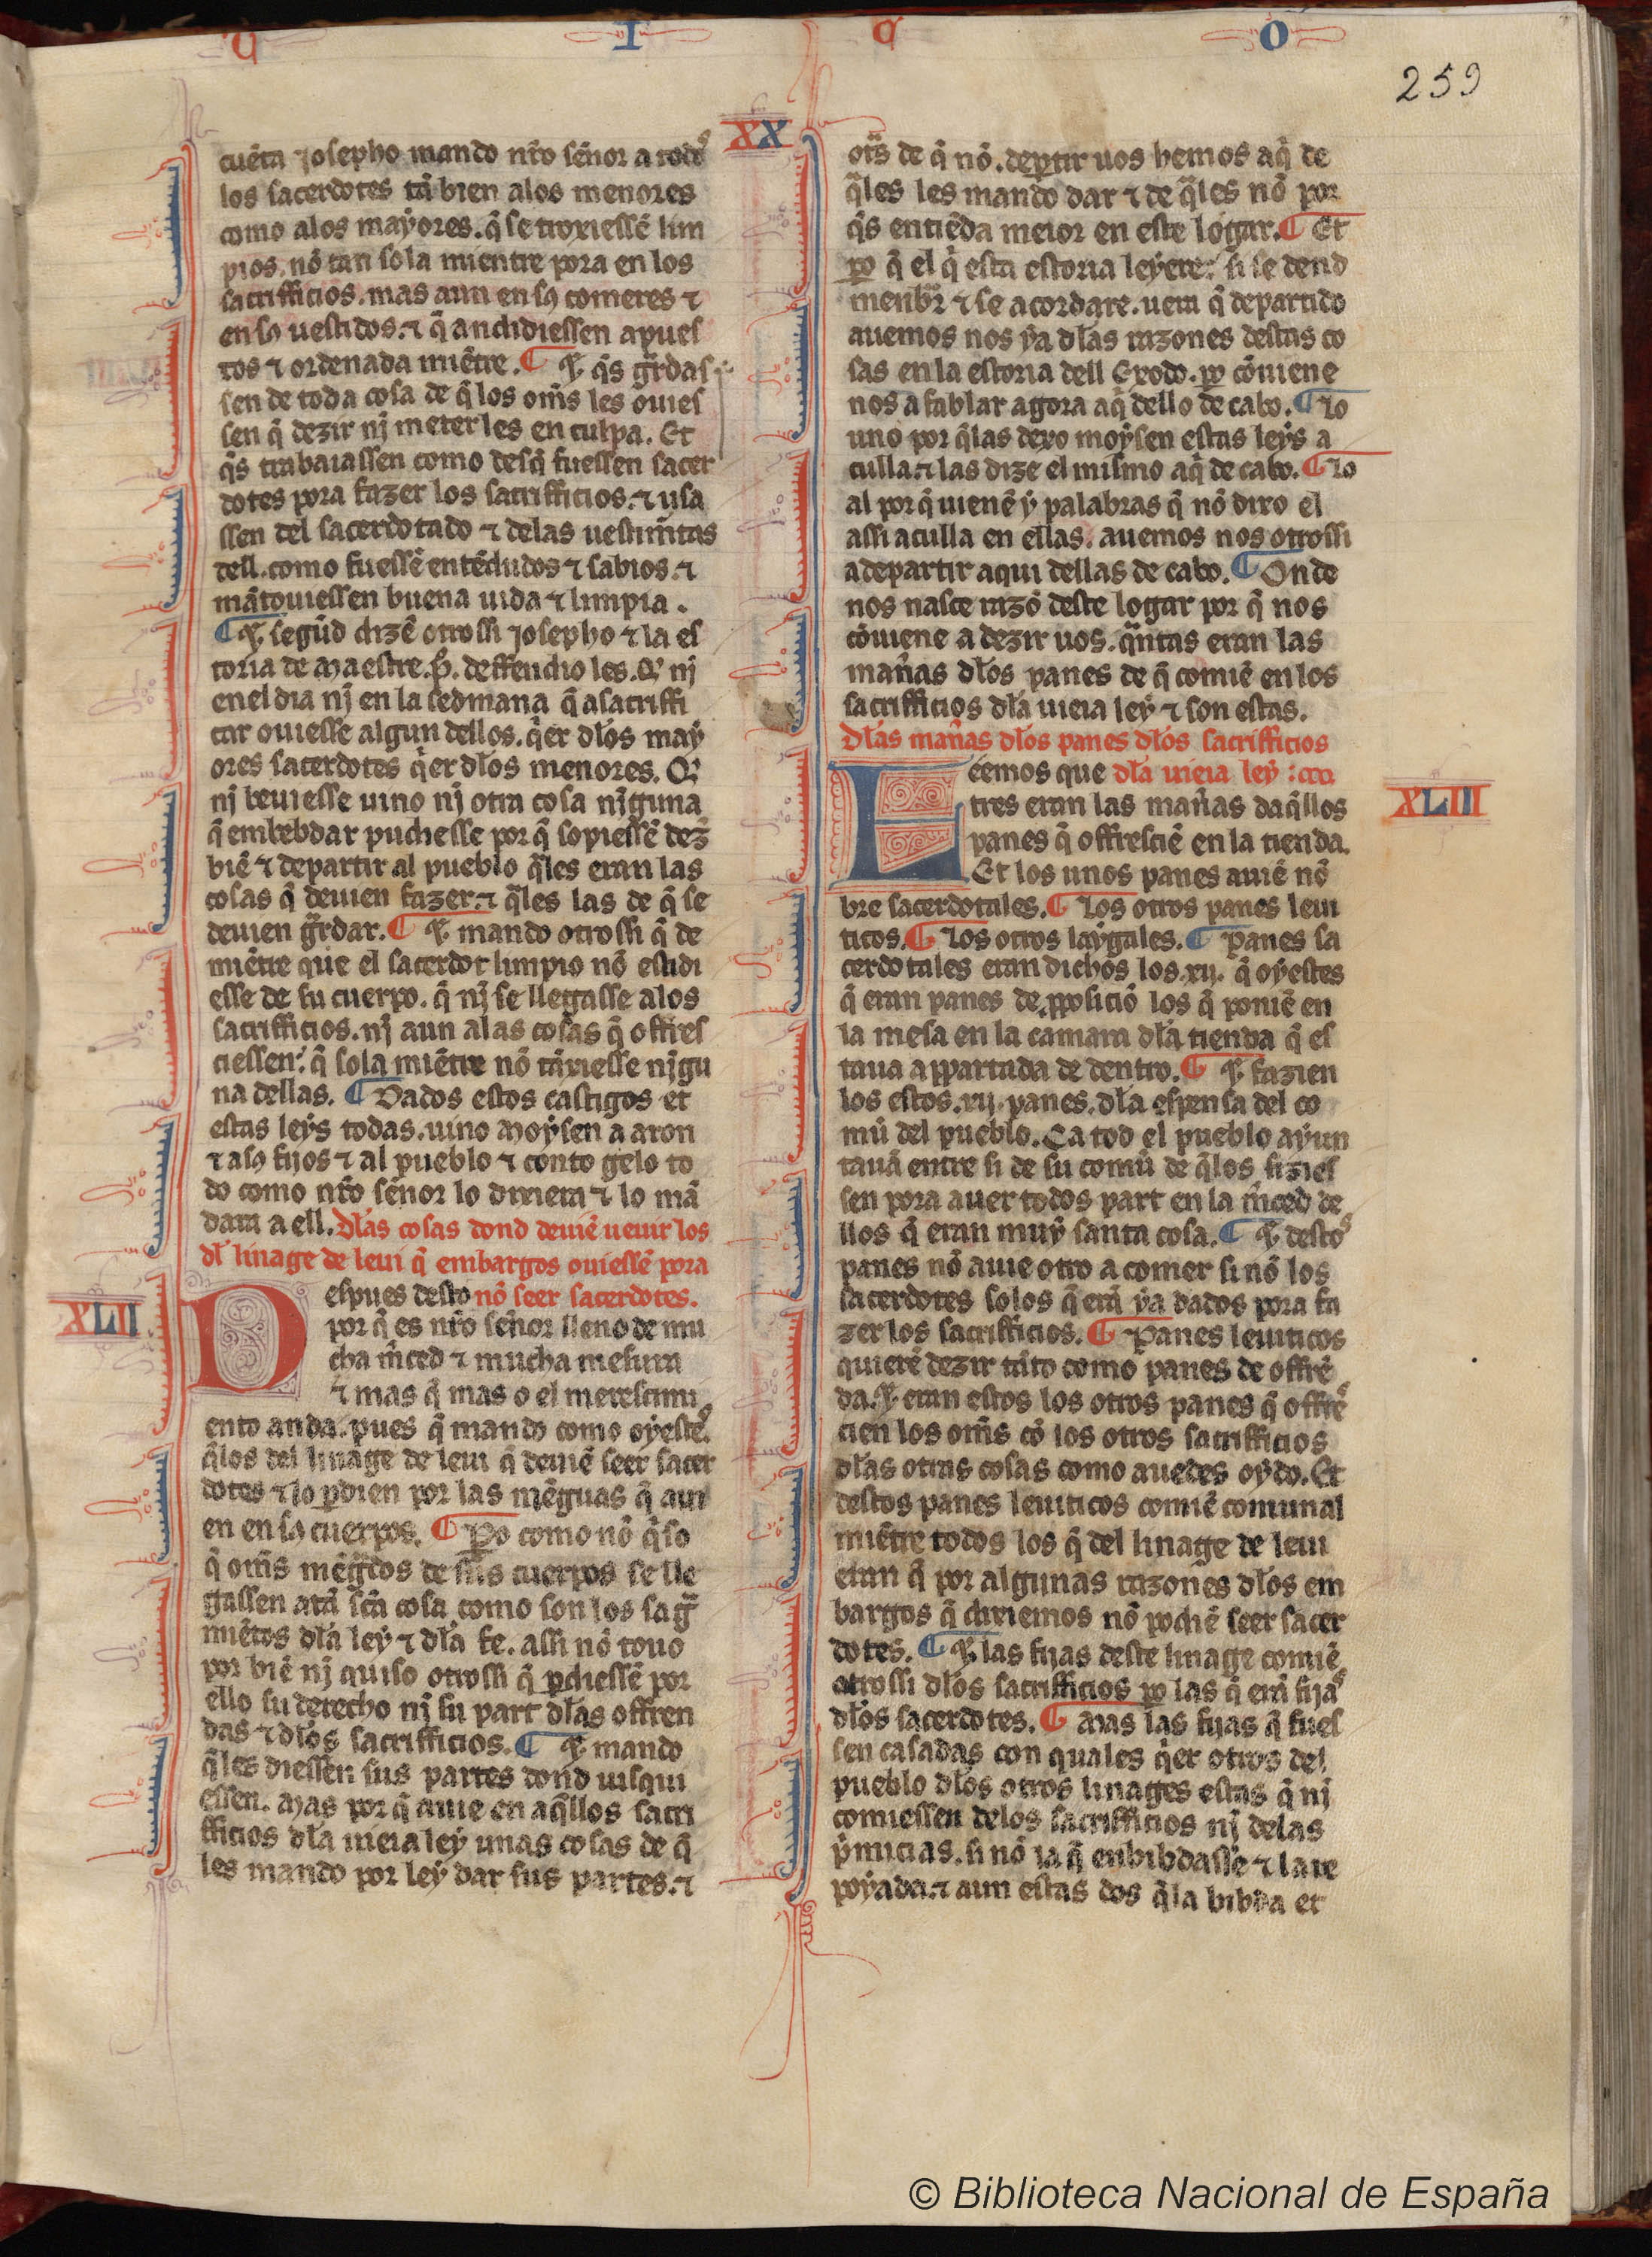 U I C O
259
XX
cuẽta iosepho mando nr̃o sẽnor a todos
los sacerdotes tã bien alos menores
como alos maẏores. q̃ se troxiessẽ lim
pios. nõ tan sola mientre pora en los
sacrifficios. mas aun en sꝯ comeres ⁊
en sꝯ uestidos. ⁊ q̃ andidiessen apues
tos ⁊ ordenada miẽtre. ¶ Et q̃s gr̃das
sen de toda cosa de q̃ los om̃s les ouies
sen q̃ dezir nj meter les en culpa. Et
q̃s trabaiassen como desq̃ fuessen sacer
dotes pora fazer los sacrifficios. ⁊ usa
ssen del sacerdotado ⁊ delas uestim̃tas
dell. como fuessẽ entẽdudos ⁊ sabios. ⁊
mãtouiessen buena uida ⁊ limpia.
¶ Et segũd dizẽ otrossi iosepho ⁊ la es
toria de maestre .p̃. deffendio les. Q̃ nj
enel dia nj en la sedmana q̃ a sacriffi
car ouiesse algun dellos. q̃er dl̃os maẏ
ores sacerdotes q̃er dl̃os menores. Q̃
nj beuiesse uino nj otra cosa njguna
q̃ embebdar pudiesse por q̃ sopiessẽ dez̃
biẽ ⁊ departir al pueblo q̃les eran las
cosas q̃ deuien fazer. ⁊ q̃les las de q̃ se
deuien gr̃dar. ¶ Et mando otrossi q̃ de
miẽtre que el sacerdot limpio nõ estidi
esse de su cuerpo. q̃ nj se llegasse alos
sacrifficios. nj aun alas cosas q̃ offres
ciessen. q̃ sola miẽtre nõ tãxiesse njgu
na dellas. ¶ Dados estos castigos et
estas leẏs todas. uino moẏsen a aron
⁊ a sꝯ fijos ⁊ al pueblo ⁊ conto gelo to
do como nr̃o sẽnor lo dixiera ⁊ lo mã
dara a ell. Dl̃as cosas dond deuiẽ ueuir los
dl̃ linage de leui q̃ embargos ouiessẽ pora
XLII
Despues desto nõ seer sacerdotes.
por q̃ es nr̃o sẽnor lleno de mu
cha m̃ced ⁊ mucha mesura
⁊ mas q̃ mas o el merescimi
ento anda. pues q̃ mando como oẏestes.
q̃los del linage de leui q̃ deuiẽ seer sacer
dotes ⁊ lo ꝑdien por las mẽguas q̃ aui
en en sꝯ cuerpos. ¶ Ꝑo como nõ q̃so
q̃ om̃s mẽg̃dos de sus cuerpos se lle
gassen atã sc̃ã cosa como son los sag̃
miẽtos dl̃a leẏ ⁊ dl̃a fe. assi nõ touo
por biẽ nj quiso otrossi q̃ ꝑdiessẽ por
ello su derecho nj su part dl̃as offren
das ⁊ dl̃os sacrifficios. ¶ Et mando
q̃les diessen sus partes dond uisqui
essen. mas por q̃ auie en aq̃llos sacri
fficios dl̃a uieia leẏ unas cosas de q̃
les mando por leẏ dar sus partes. ⁊
otr̃s de q̃ nõ. deꝑtir uos hemos aq̃ de
q̃les les mando dar ⁊ de q̃les nõ por
q̃s entiẽda meior en este logar. ¶ Et
ꝑo q̃ el q̃ esta estoria leẏere. si se dend
menbr̃ ⁊ se acordare. uera q̃ departido
auemos nos ẏa dl̃as razones destas co
sas en la estoria dell Exodo. ꝑo cõuiene
nos a fablar agora aq̃ dello de cabo. ¶ Lo
uno por q̃las dexo moẏsen estas leẏs a
culla. ⁊ las dize el mismo aq̃ de cabo. ¶ Lo
al por q̃ uienẽ ẏ palabras q̃ nõ dixo el
assi aculla en ellas. auemos nos otrossi
a departir aqui dellas de cabo. ¶ Onde
nos nasce razõ deste logar por q̃ nos
cõuiene a dezir uos. q̃ntas eran las
mañas dl̃os panes de q̃ comiẽ en los
sacrifficios dl̃a uieia leẏ ⁊ son estas.
Dl̃as mañas dl̃os panes dl̃os sacrifficios
XLIII
Leemos que dl̃a uieia leẏ
tres eran las mañas daq̃llos
panes q̃ offresciẽ en la tienda.
Et los unos panes auiẽ nõ
bre sacerdotales. ¶ Los otros panes leui
ticos. ¶ Los otros laẏgales. ¶ Panes sa
cerdotales eran dichos los .xij. q̃ oẏestes
q̃ eran panes de ꝓposiciõ los q̃ poniẽ en
la mesa en la camara dl̃a tienda q̃ es
taua appartada de dentro. ¶ Et fazien
los estos .xij. panes. dl̃a espensa del co
mũ del pueblo. Ca tod el pueblo aẏun
tauã entre si de su comũ de q̃los fizies
sen pora auer todos part en la m̃ced de
llos q̃ eran muẏ santa cosa. ¶ Et destos
panes nõ auie otro a comer si nõ los
sacerdotes solos q̃ erã ẏa dados pora fa
zer los sacrifficios. ¶ Panes leuiticos
quierẽ dezir tãto como panes de offrẽ
da. Et eran estos los otros panes q̃ offres
cien los om̃s cõ los otros sacrifficios
dl̃as otras cosas como auedes oẏdo. Et
destos panes leuiticos comiẽ comunal
miẽtre todos los q̃ del linage de leui
eran q̃ por algunas razones dl̃os em
bargos q̃ dixiemos nõ podiẽ seer sacer
dotes. ¶ Et las fijas deste linage comiẽ
otrossi dl̃os sacrifficios ꝑo las q̃ erã fijas
dl̃os sacerdotes. ¶ Mas las fijas q̃ fues
sen casadas con quales q̃er otros del
pueblo dl̃os otros linages estas q̃ nj
comiessen delos sacrifficios nj delas
p̃micias. si nõ la q̃ enbibdasse ⁊ la re
poẏada. ⁊ aun estas dos q̃la bibda et
© Biblioteca Nacional de España